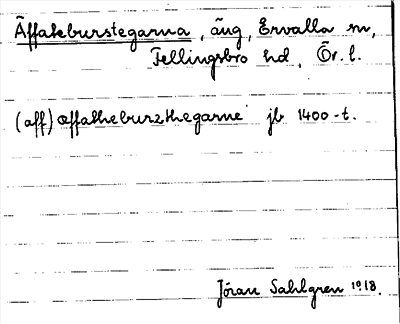 Äffakeburstegarna, äng, Ervalla sn,
Fellingsbro hd, Ör. l.
(aff) æffatheburzthegarne jb 1400-t.
Jöran Sahlgren 1918.